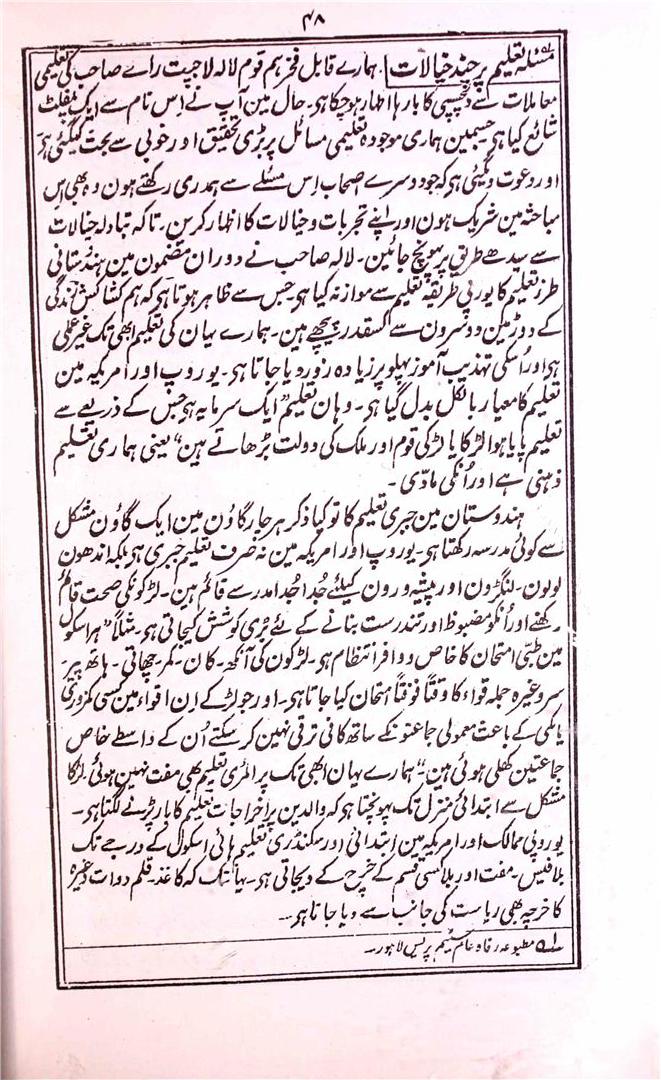 ۴۸
مسئلہ تعلیم پر چند خیالات ۱؎. ہمارے قابل فخر ہم قوم لالہ لاجپت راے صاحب کی تعلیمی
معاملات سے دلچسپی کا بارہا اظہار ہوچکا ہو۔ حال مین آپ نے اِس نام سے ایک پمفلٹ
شائع کیا ہو جسمین ہماری موجودہ تعلیمی مسائل پر بڑی تحقیق اور خوبی سے بحث کیگئی ہو
اور دعوت دیگئی ہو کہ جو دوسرے اصحاب اِس مسئلے سے ہمدری رکھتے ہون وہ بھی اِس
مباحثہ مین شریک ہون اور اپنے تجربات و خیالات کا اظہار کرین۔ تاکہ تبادلہ خیالات
سے سیدھے طریق پر پہونچ جائین۔ لالہ صاحب نے دوران مضمون مین ہندستانی
طرز تعلیم کا یورپی طریقہ تعلیم سے موازنہ کیا ہو۔ جس سے ظاہر ہوتا ہو کہ ہم کشاکش زندگی
کے دوڑ مین دوسرون سے کسقدر پیچھے ہین۔ ہمارے یہان کی تعلیم ابھی تک غیر عملی
ہو اور اُسکی تہذیب آموز پہلو پر زیادہ زور دیا جاتا ہو۔ یوروپ اور امریکہ مین
تعلیم کا معیار بالکل بدل گیا ہو۔ وہان تعلیم ”ایک سرمایہ ہو جس کے ذریعے سے
تعلیم پایا ہوا لڑکا یا لڑکی قوم اور ملک کی دولت بڑھاتے ہین“ یعنی ہماری تعلیم
ذہنی ہے اور اُنکی مادّی۔
ہندوستان مین جبری تعلیم کا تو کیا ذکر ہر چار گاؤن مین ایک گاؤن مشکل
سے کوئی مدرسہ رکھتا ہو۔ یوروپ اور امریکہ مین نہ صرف تعلیم جبری ہو بلکہ اندھون
لولون۔ لنگڑون اور پیشہ ورون کیلئے جُدا جُدا مدرسے قائم ہین۔ لڑکونکی صحت قائم
رکھنے اور اُنکو مضبوط اور تندرست بنانے کے لئے بڑی کوشش کیجاتی ہو۔ مثلاً ”ہر اسکول
مین طبّی امتحان کا خاص و وافر انتظام ہو۔ لڑکون کی آنکھ۔ کان۔ کمر۔ چھاتی۔ ہاتھ پیر۔
سر وغیرہ جملہ قواء کا وقتاً فوقتاً امتحان کیا جاتا ہو۔ اور جو لڑکے اِن اقواء مین کسی کمزوری
یا کمی کے باعث معمولی جماعتونکے ساتھ کافی ترقی نہین کر سکتے اُن کے واسطے خاص
جماعتین کھلی ہوئی ہین۔“ ہمارے یہان ابھی تک پرائمری تعلیم بھی مفت نہین ہوئی۔ لڑکا
مشکل سے ابتدائی منزل تک پہونچتا ہو کہ والدین پر اخراجات تعلیم کا بار پڑنے لگتا ہو۔
یوروپی ممالک اور امریکہ مین ابتدائی اور سکنڈری تعلیم ہائی اسکول کے درجے تک
بلا فیس۔ مفت اور بلا کسی قسم کے خرچ کے دیجاتی ہو۔ یہانتک کہ کاغذ۔ قلم دوات وغیرہ
کا خرچہ بھی ریاست کی جانب سے دیا جاتا ہو۔
۱؎ مطبوعہ رفاہ عام سٹیم پریس لاہور۔